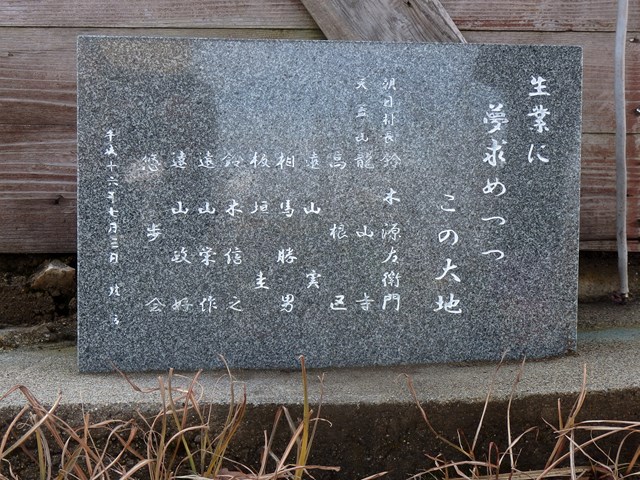 生業に
夢求めつつ
この大地
朝日村長 鈴木源左衛門
天蓋山 龍山寺
高根区
遠山実
相馬勝男
板垣圭
鈴木信之
遠山栄作
遠山政好
悠歩会
平成十六年七月三日